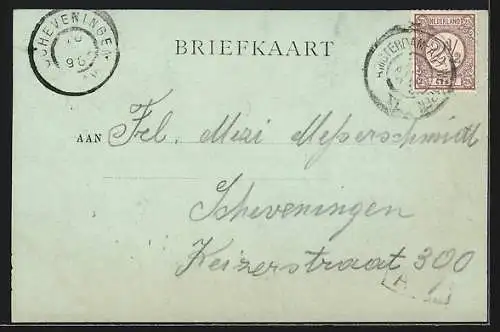 SCHEVENINGEN
96
BRIEFKAART
NEDERLAND
AMSTERDAM
AAN Fel. Mezi Messerschmidt
Scheveningen
Keizerstraat 300